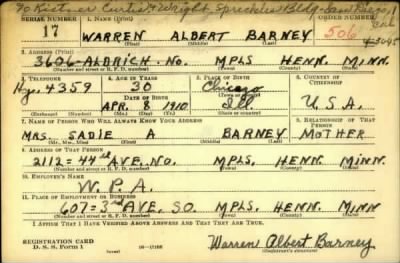 % Kistner Curtis Wright, Spreckles Bldg. San Diego,
SERIAL NUMBER 1. NAME (Print) ORDER NUMBER
17 WARREN ALBERT BARNEY 506
(First) (Middle) (Last)
2. ADDRESS (Print)
3606-ALDRICH-NO. MPLS HENN. MINN.
(Number and street or R. F. D. number) (Town) (County) (State)
3. TELEPHONE 4. AGE IN YEARS 5. PLACE OF BIRTH 6. COUNTRY OF CITIZENSHIP
Hy. 4359 30 Chicago
DATE OF BIRTH (Town or county)
APR. 8 1910 Ill U.S.A.
(Exchange) (Number) (Mo.) (Day) (Yr.) (State or country)
7. NAME OF PERSON WHO WILL ALWAYS KNOW YOUR ADDRESS 8. RELATIONSHIP OF THAT PERSON
MRS. SADIE A BARNEY MOTHER
(Mr., Mrs., Miss) (First) (Middle) (Last)
9. ADDRESS OF THAT PERSON
2112=44th AVE. NO. MPLS. HENN. MINN
(Number and street or R. F. D. number) (Town) (County) (State)
10. EMPLOYER'S NAME
W.P.A.
11. PLACE OF EMPLOYMENT OR BUSINESS
607=3rd AVE. SO. MPLS. HENN. MINN
(Number and street or R. F. D. number) (Town) (County) (State)
I AFFIRM THAT I HAVE VERIFIED ABOVE ANSWERS AND THAT THEY ARE TRUE.
REGISTRATION CARD
D. S. S. Form 1 16-17105 Warren Albert Barney
(Registrant's signature)